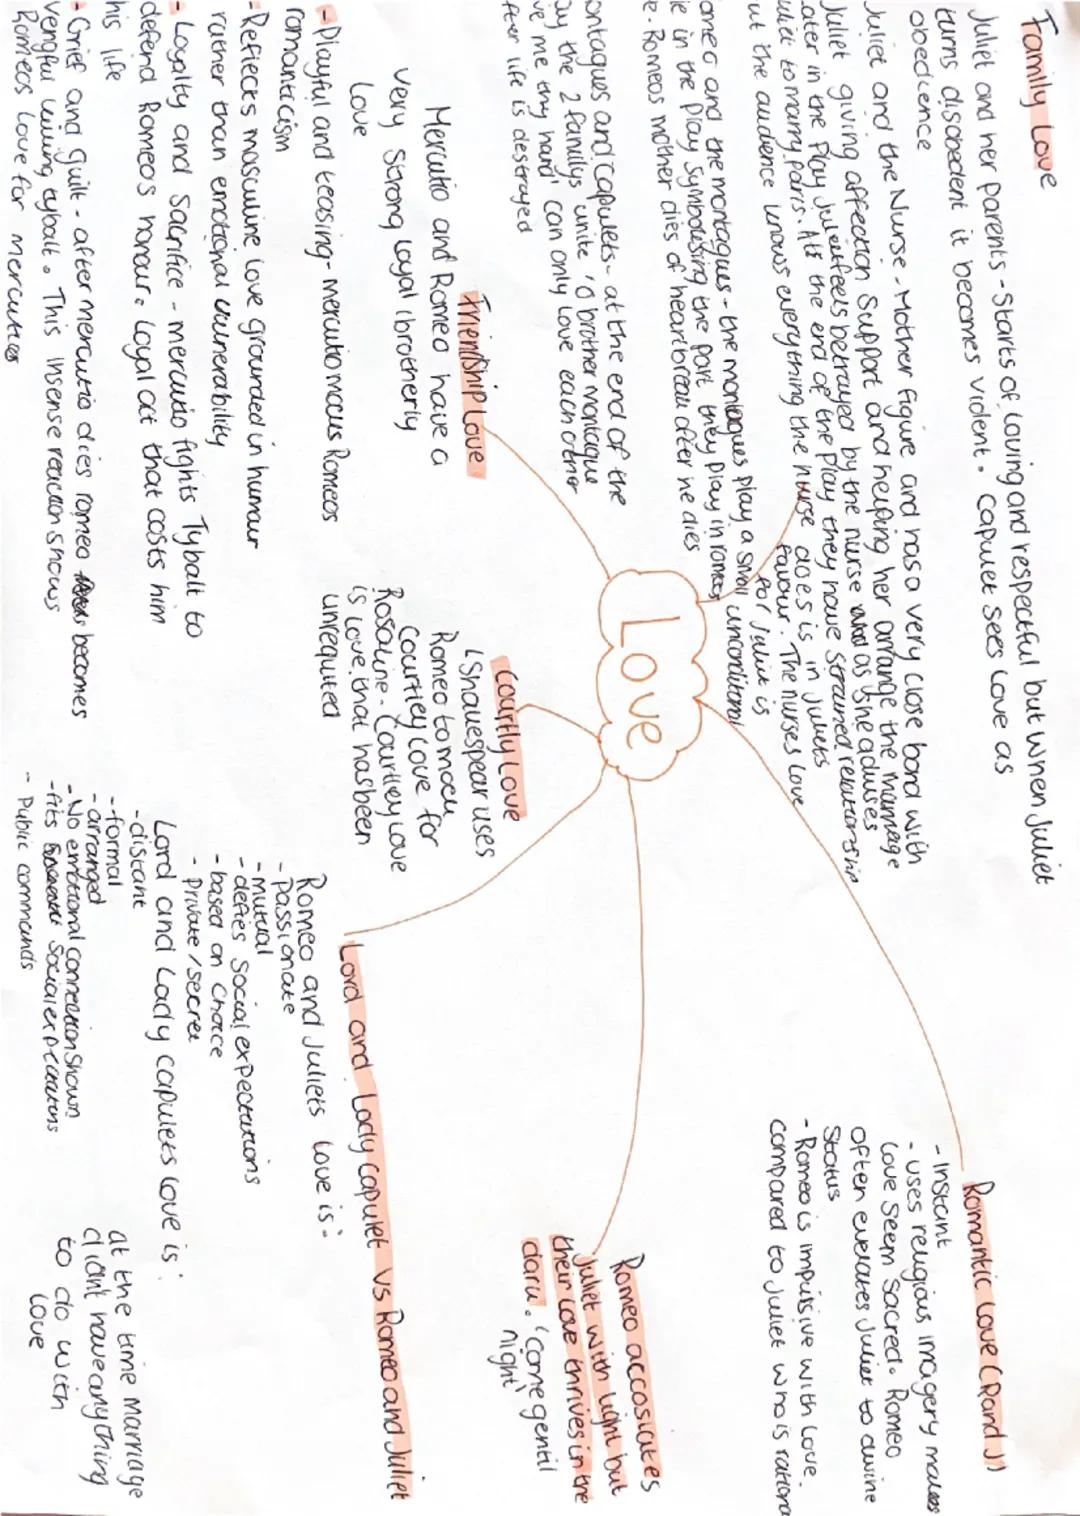 Family Love
Juliet and her parents - Starts of loving and respectful but when Juliet
turns disobedent it becomes violent. Capulet sees love as
obedience
Juliet and the Nurse - Mother figure and has a very close bond with
Juliet giving affection support and helping her arrange the marriage
Later in the Play Juliet feels betrayed by the nurse as she advises
Juliet to marry Paris. At the end of the Play they have strained relationship
but the audience knows everything the nurse does is in Juliets
favour. The nurses love
for Juliet is
unconditonal
and the montagues - the montagues play a small
in the Play Symbolising the part they play in romeos
e. Romeos mother dies of heartbreak after he dies
ontagues and Capulets - at the end of the
ay the 2 familys unite, 'O brother Montague
ve me thy hand' can only love each other
fter life is destroyed
Love
Romantic Love (R and J)
- Instant
- uses religious imagery makes
love seem sacred. Romeo
often elevates Juliet to divine
Status
- Romeo is impulsive with love
compared to Juliet who is rationa
Friendship Love
Mercutio and Romeo have a
very strong loyal (brotherly
Love
- Playful and teasing - mercutio mocks Romeos
romanticism
- Reflects masculine love grounded in humour
rather than emotional vulnerability
- Loyalty and Sacrifice - mercutio fights Tybalt to
defend Romeo's honour. Loyal act that costs him
his life
- Grief and guilt - after mercutio dies romeo becomes
vengful killing tybalt. This insense reaction shows
Romeos Love for mercutios
Courtly Love
Shakespear uses
Romeo to mock
Courtley Love for
Rosaline. Courtley Love
is love that has been
unrequited
Romeo accosiates
Juliet with light but
their love thrives in the
dark. 'Come gentil
night'
Lord and Lady Capulet vs Romeo and Juliet
Romeo and Juliets love is:
- Passionate
- mutual
- defies social expectations
- based on Choice
- Private / secret
Lord and Lady Capulets love is:
- distant
- formal
- arranged
- No emotional connection shown
- fits social expectations
- Public commands
at the time marriage
didnt have anything
to do with
love